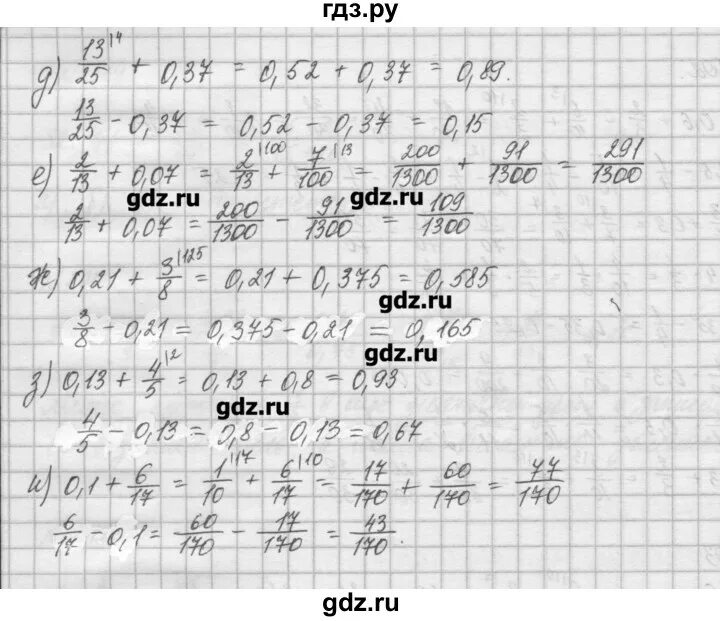 гдз.ру
д) 13/25 |4 + 0,37 = 0,52 + 0,37 = 0,89.
13/25 - 0,37 = 0,52 - 0,37 = 0,15
е) 2/13 + 0,07 = 2/13 |100 + 7/100 |13 = 200/1300 + 91/1300 = 291/1300
gdz.ru gdz.ru
2/13 + 0,07 = 200/1300 - 91/1300 = 109/1300
ж) 0,21 + 3/8 |125 = 0,21 + 0,375 = 0,585
gdz.ru
3/8 - 0,21 = 0,375 - 0,21 = 0,165
gdz.ru
з) 0,13 + 4/5 |2 = 0,13 + 0,8 = 0,93
gdz.ru
4/5 - 0,13 = 0,8 - 0,13 = 0,67
и) 0,1 + 6/17 = 1/10 |17 + 6/17 |10 = 17/170 + 60/170 = 77/170
6/17 - 0,1 = 60/170 - 17/170 = 43/170.
gdz.ru